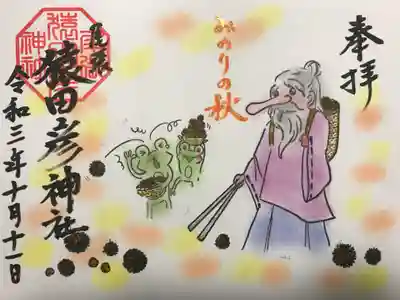 奉拝
みのりの秋
猿田彦神社
令和三年十月十一日